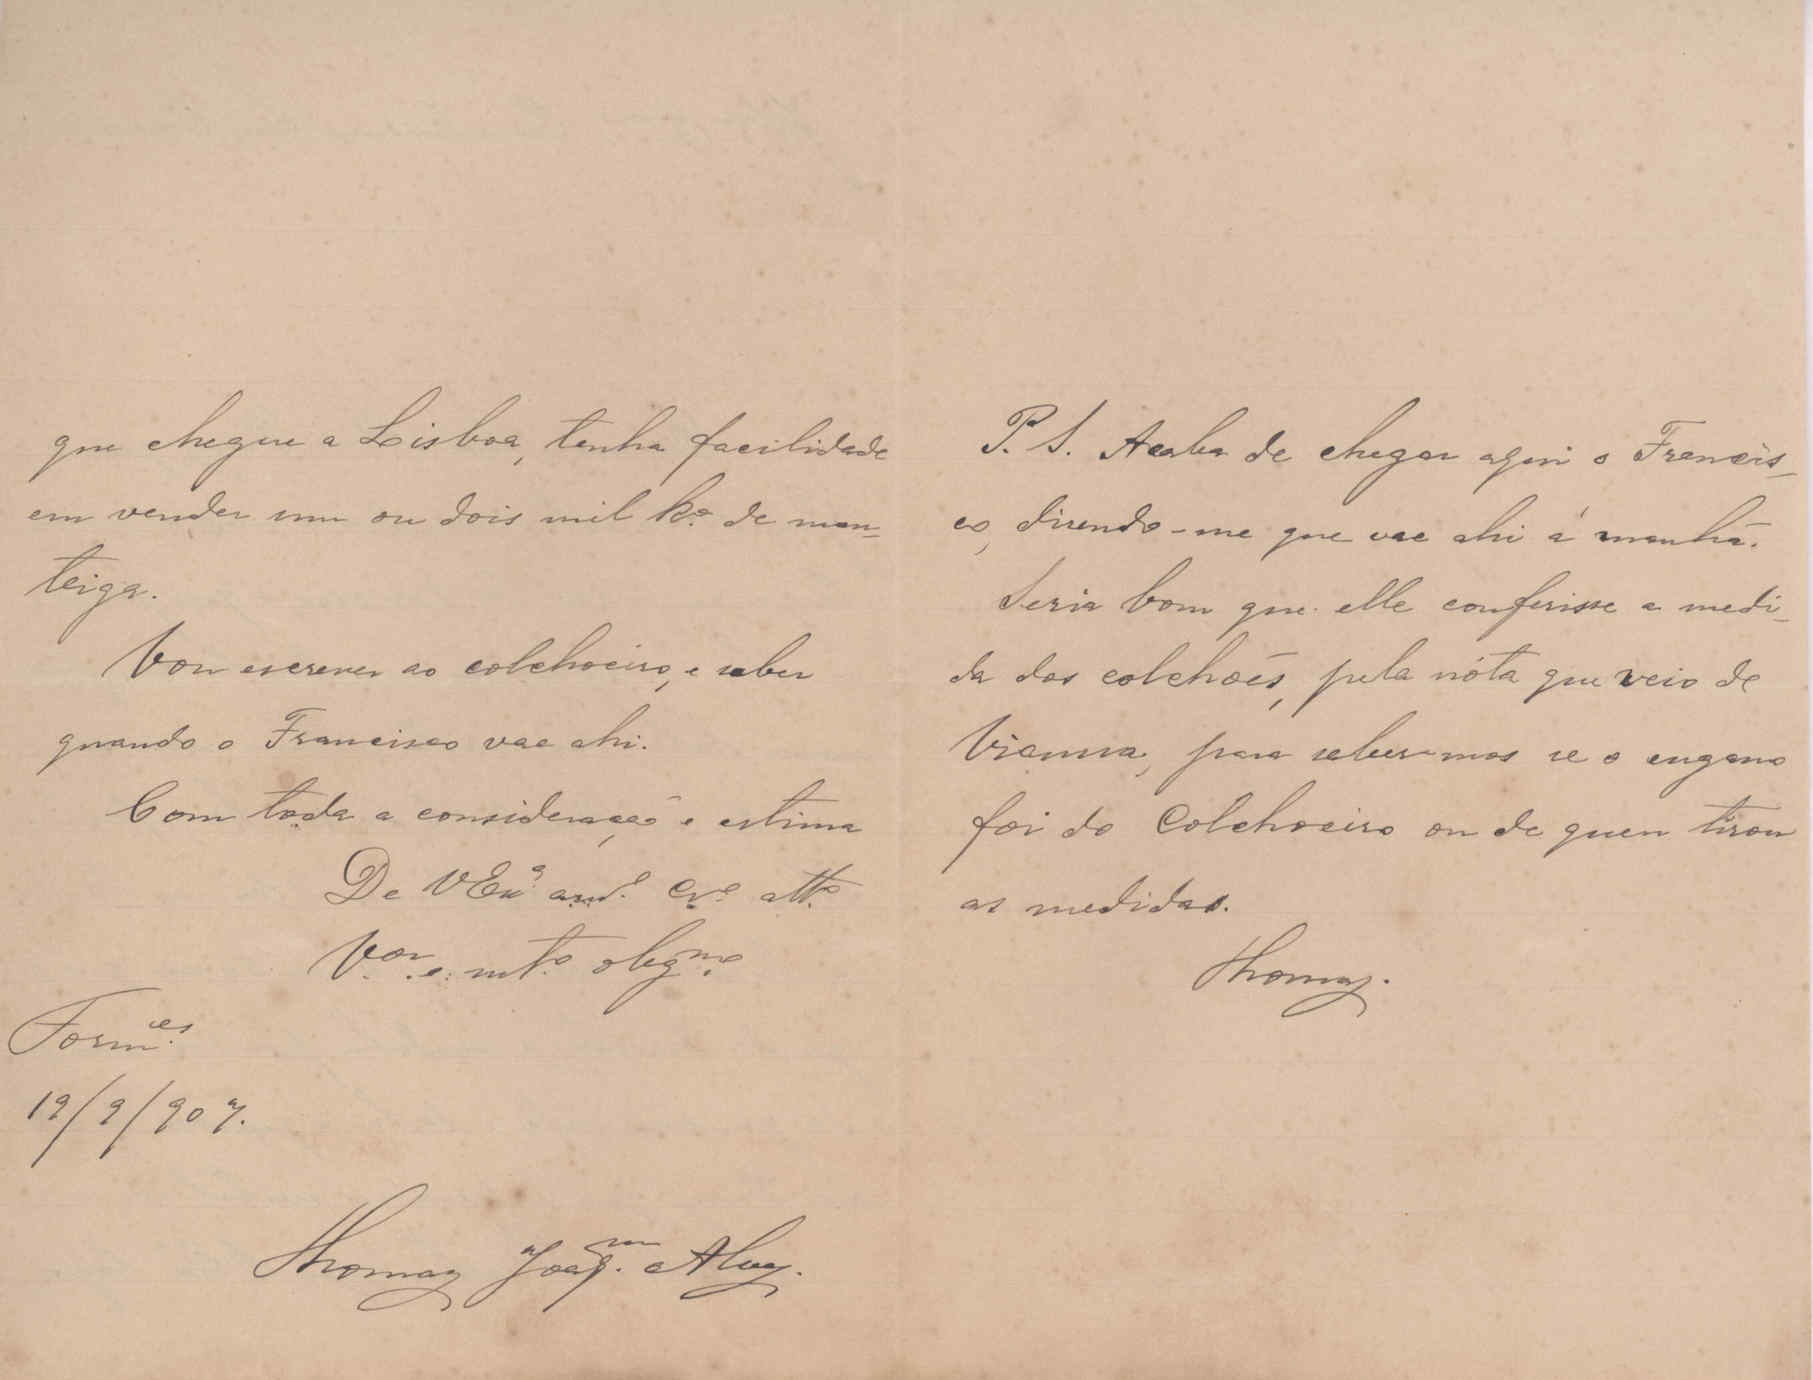 que chegue a Lisboa, tenha facilidade
em vender um ou dois mil k.º de man=
teiga.
Vou escrever ao colchoeiro, e saber
quando o Francisco vae ahi.
Com toda a consideração e estima
De V Ex.ª am.º Cr.º att.º
V.or e m.to obg.mo
Form.es
19/9/907.
Thomaz Joaq.m Alvez.
P. S. Acaba de chegar aqui o Francis_
co, dizendo-me que vae ahi á manhã.
Seria bom que elle conferisse a medi_
da dos colchoẽs, pela nóta que veio de
Vianna, para saber-mos se o engano
foi do Colchoeiro ou de quem tirou
as medidas.
Thomaz.